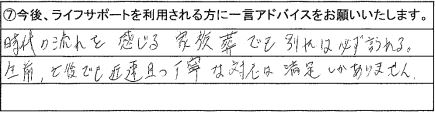 ⑦今後、ライフサポートを利用される方に一言アドバイスをお願いいたします。
時代の流れを感じる家族葬でも別れは必ず訪れる。
生前、亡後でも迅速且つ丁寧な対応は満足しかありません。